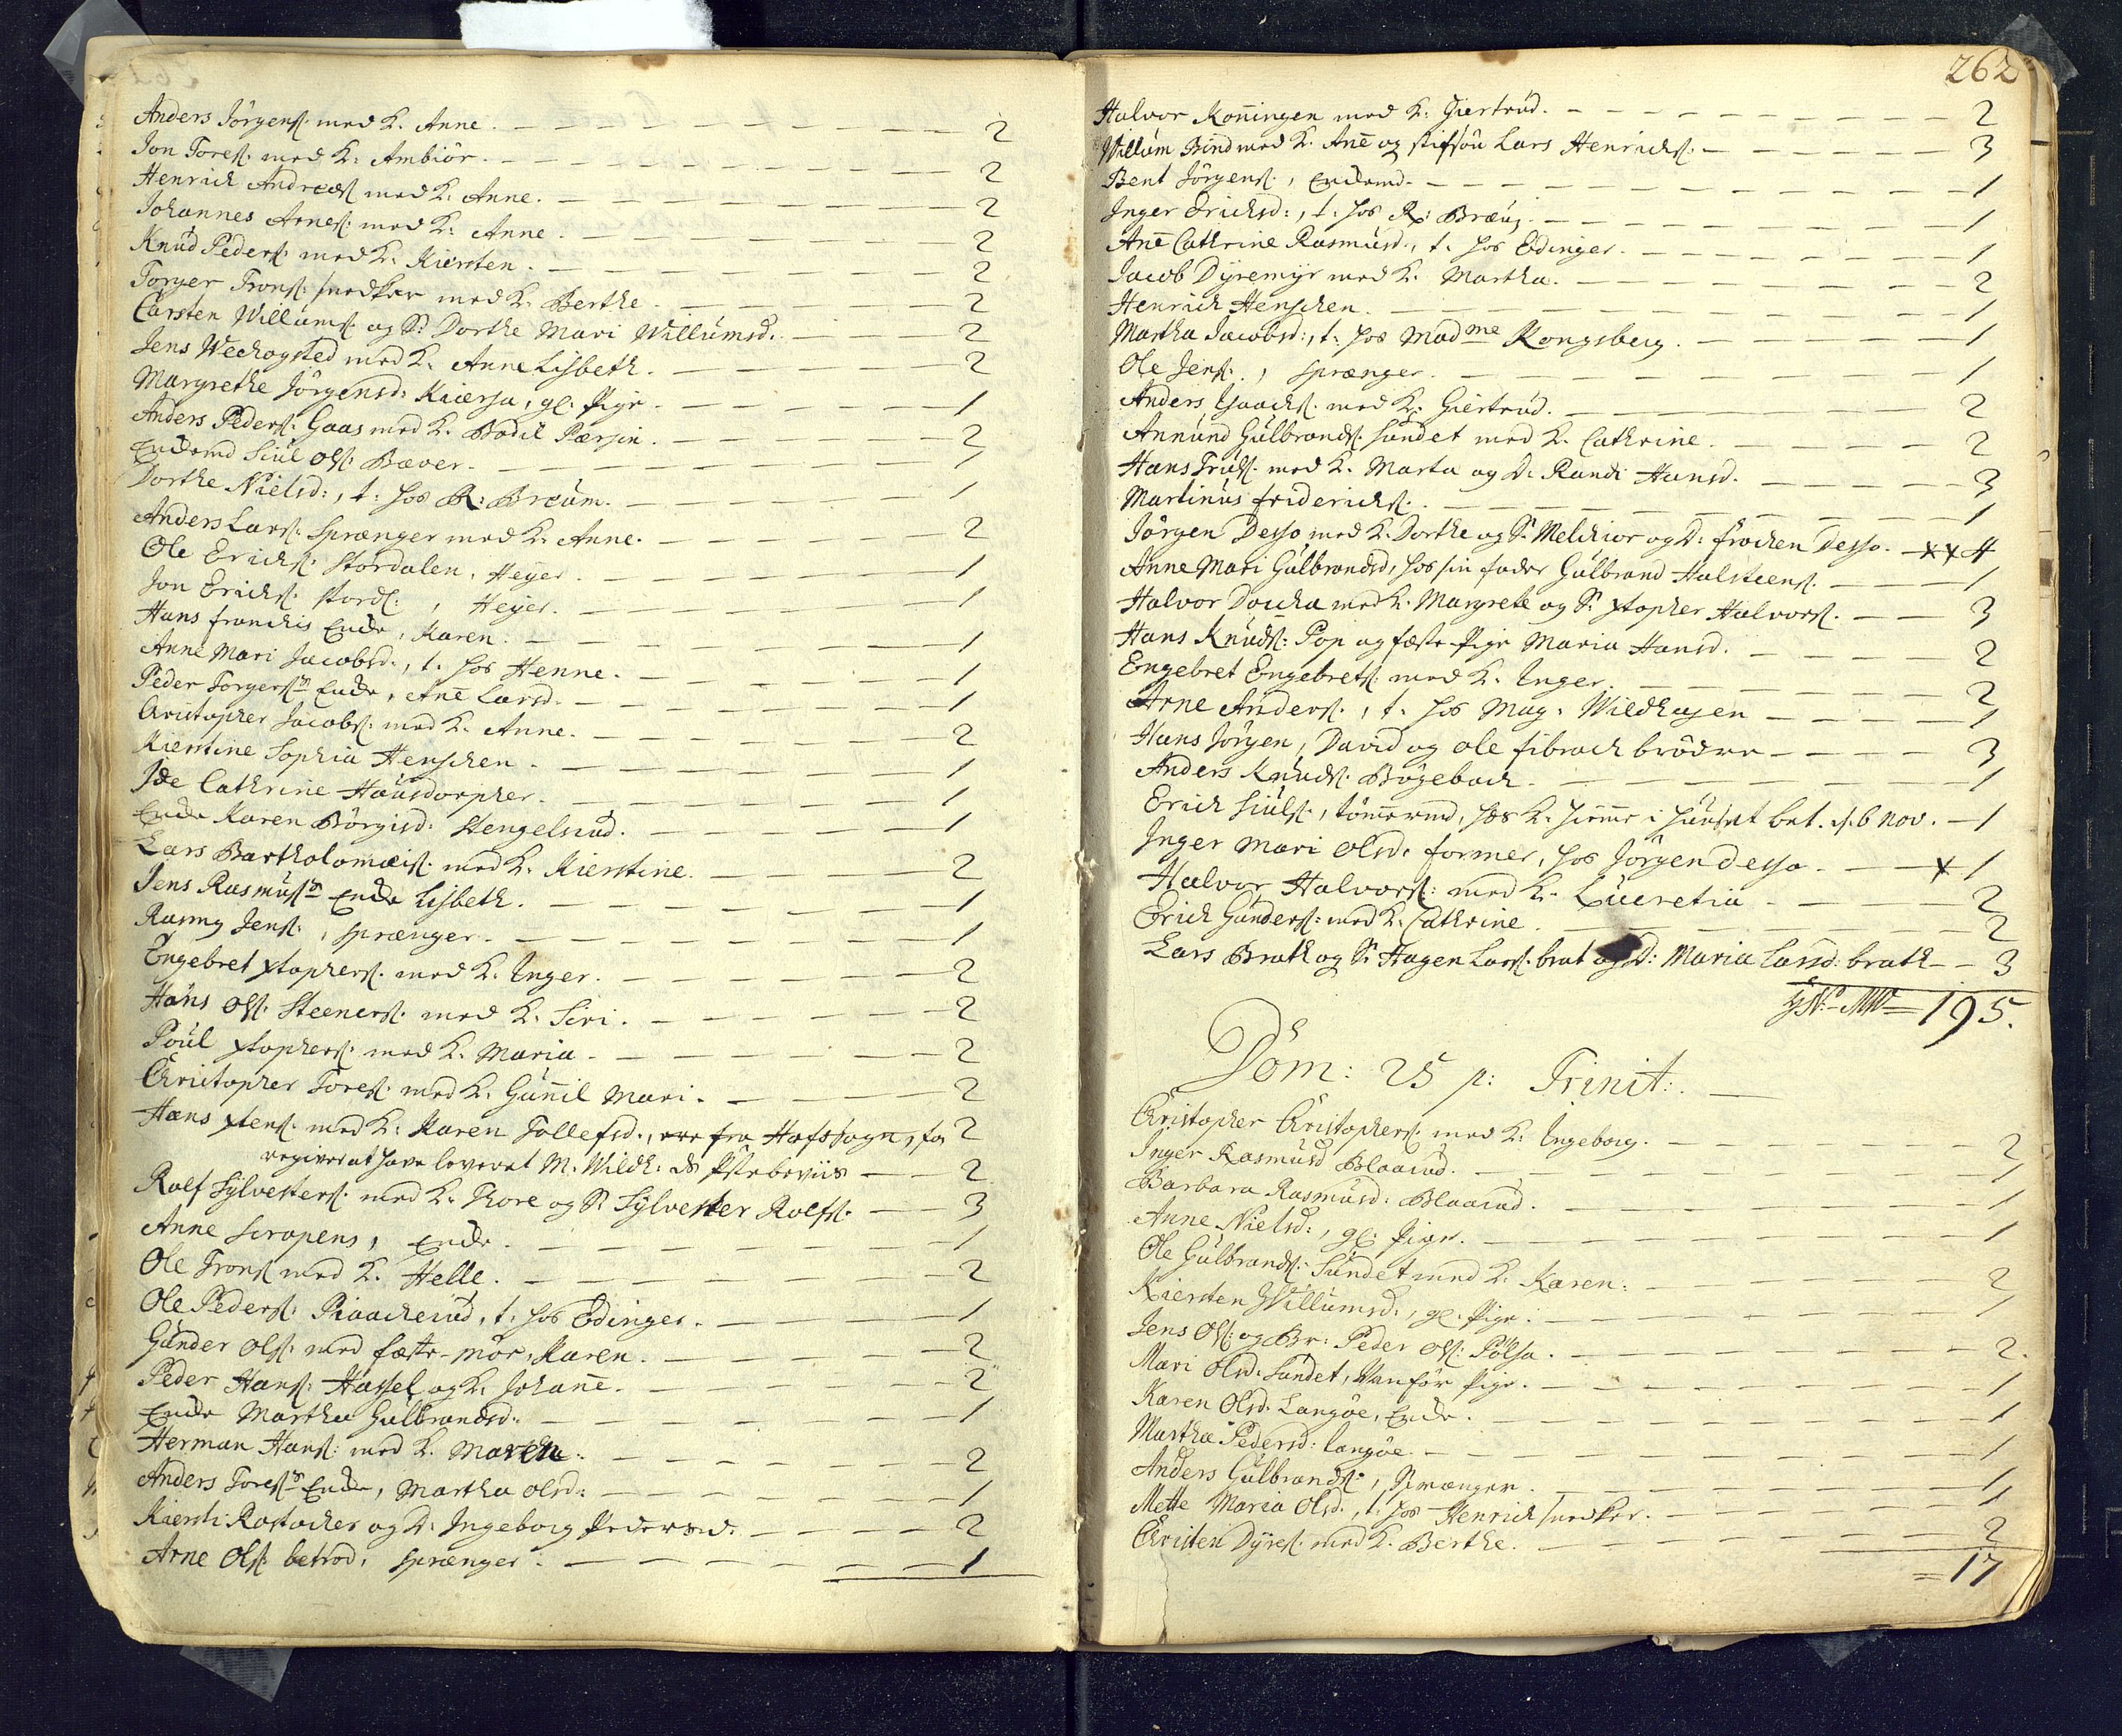 Anders Jörgens. med K. Anne. 2
Jon Tores. med K: Ambiör. 2
Henrich Andreæs. med K. Anne. 2
Johannes Arnes. med K: Anne. 2
Knud Peders. med K. Kiersten. 2
Torger Trons. snedker med K. Berthe. 2
Carsten Willums. og S: Dorthe Mari Willumsd. 2
Jens Wechogsted med K. Anne Lisbeth. 2
Margrethe Jörgensd: Kiærsa, gl. Pige. 1
Anders Peders. Gaas med K. Bodil Persin. 2
Enckemd Siul Ols. Bæver. 1
Dorthe Nielsd:, t: hos R: Breum. 1
Anders Lars. Sprænger med K. Anne. 2
Ole Erichs. Stordalen, Heyer. 1
Jon Erichs. stord:, Heyer. 1
Hans franchis Encke, Karen. 1
Anne Mari Jacobsd., t. hos Henne. 1
Peder Torgers: Encke, Ane Larsd. 1
Christopher Jacobs. med K. Anne. 2
Kierstine Sophia Henschen. 1
Ide Cathrine Hausdorpher. 1
Encke Karen Börgisd: Stengelsrud. 1
Lars Bartholomæis. med K. Kierstine. 2
Jens Rasmus: Encke Lisbeth. 1
Rasmy Jens., sprænger. 1
Engebret xtophers. med K. Inger. 2
Hans Ols. Steeners. med K. Siri. 2
Poul xtophers. med K. Maria. 2
Christopher Tores. med K. Gunnil Mari. 2
Hans xtens. med K: Karen Tollefsd., fra Hafsfogn, for 2
regiver at have leveret M. Wildh: ds Pstebeviis 2
Rolf Sylvesters. med K. Thore og S: Sylvester Rolfs. 3
Anne Scropens, Encke. 1
Ole Trons. med K. Helle. 2
Ole Peders. Piaacherud, t. hos Edinger. 1
Gunder Ols. med fæste-mör, Karen. 2
Peder Hans. Hassel og K. Johanne. 2
Encke Martha Gulbrandsd. 1
Herman Hans. med K. Maren. 2
Anders Tores: Encke, Martha Olsd. 1
Kiersti Rostocher og D: Ingeborg Pedersd. 2
Arne Ols. betrod, sprænger. 1
262
Halvor Konningen med K: Giertrud. 2
Willum Bind med K. Ane og stifsön Lars Henrichs. 3
Bent Jörgens., Enckemd. 1
Inger Erichsd:, t: hos R: Bræug. 1
Ane Cathrine Rasmusd., t. hos Edinger. 1
Jacob Dyremyr med K. Martha. 2
Henrich Henschen. 1
Martha Jacobsd:, t: hos Madme Kongsberg. 1
Ole Jens., sprænger. 1
Anders Isaachs. med K: Giertrud. 2
Annund Gulbrands. Sundet med K. Cathrine. 2
Hans Truls. med K. Marta og D: Randi Hansd. 3
Martinus friderichs. 1
Jörgen Desso med K. Dorthe og S: Melchior og D: frochen Desso. xx 4
Anne Mari Gulbrandsd, hos sin fader Gulbrand Halsteens. 1
Halvor Doccka med K. Margrete og S: xtopher Halvors. 3
Hans Knuds. Pop og fæste Pige Maria Hansd. 2
Engebret Engebrets. med K. Inger. 2
Arne Anders., t. hos Mag: Wildhagen 1
Hans Jörgen, David og Ole fibrach brödre 3
Anders Knuds. Bögebach. 1
Erich Siuls., tömmermd, hos K. i huuset bet. d. 6 Nov. 1
Inger Mari Olsd. former, hos Jörgen Desso. x 1
Halvor Halvors. med K. Lucretia. 2
Erich Gunders. med K. Cathrine. 2
Lars Brath og S: Hagen Lars. brat og D: Maria Larsd: brath 3
195.
Dom: 25 p: Trinit:.
Christopher Christophers. med K: Ingeborg. 2
Inger Rasmusd Blaarud. 1
Barbara Rasmusd: Blaarud. 1
Anne Nielsd:, gl: Pige. 1
Ole Gulbrands. Sundet med K. Karen. 2
Kiersten Willumsd., gl. Pige. 1
Jens Ols. og Br: Peder Ols. Pölsa. 2.
Mari Olsd. Sundet, Vanför Pige. 1
Karen Olsd. Langöe, Encke. 1
Martha Pedersd: Langöe. 1
Anders Gulbrands., Sprænger. 1
Mette Maria Olsd., t. hos Henrich snedker. 1
Christen Dyres. med K. Berthe. 2
= 17